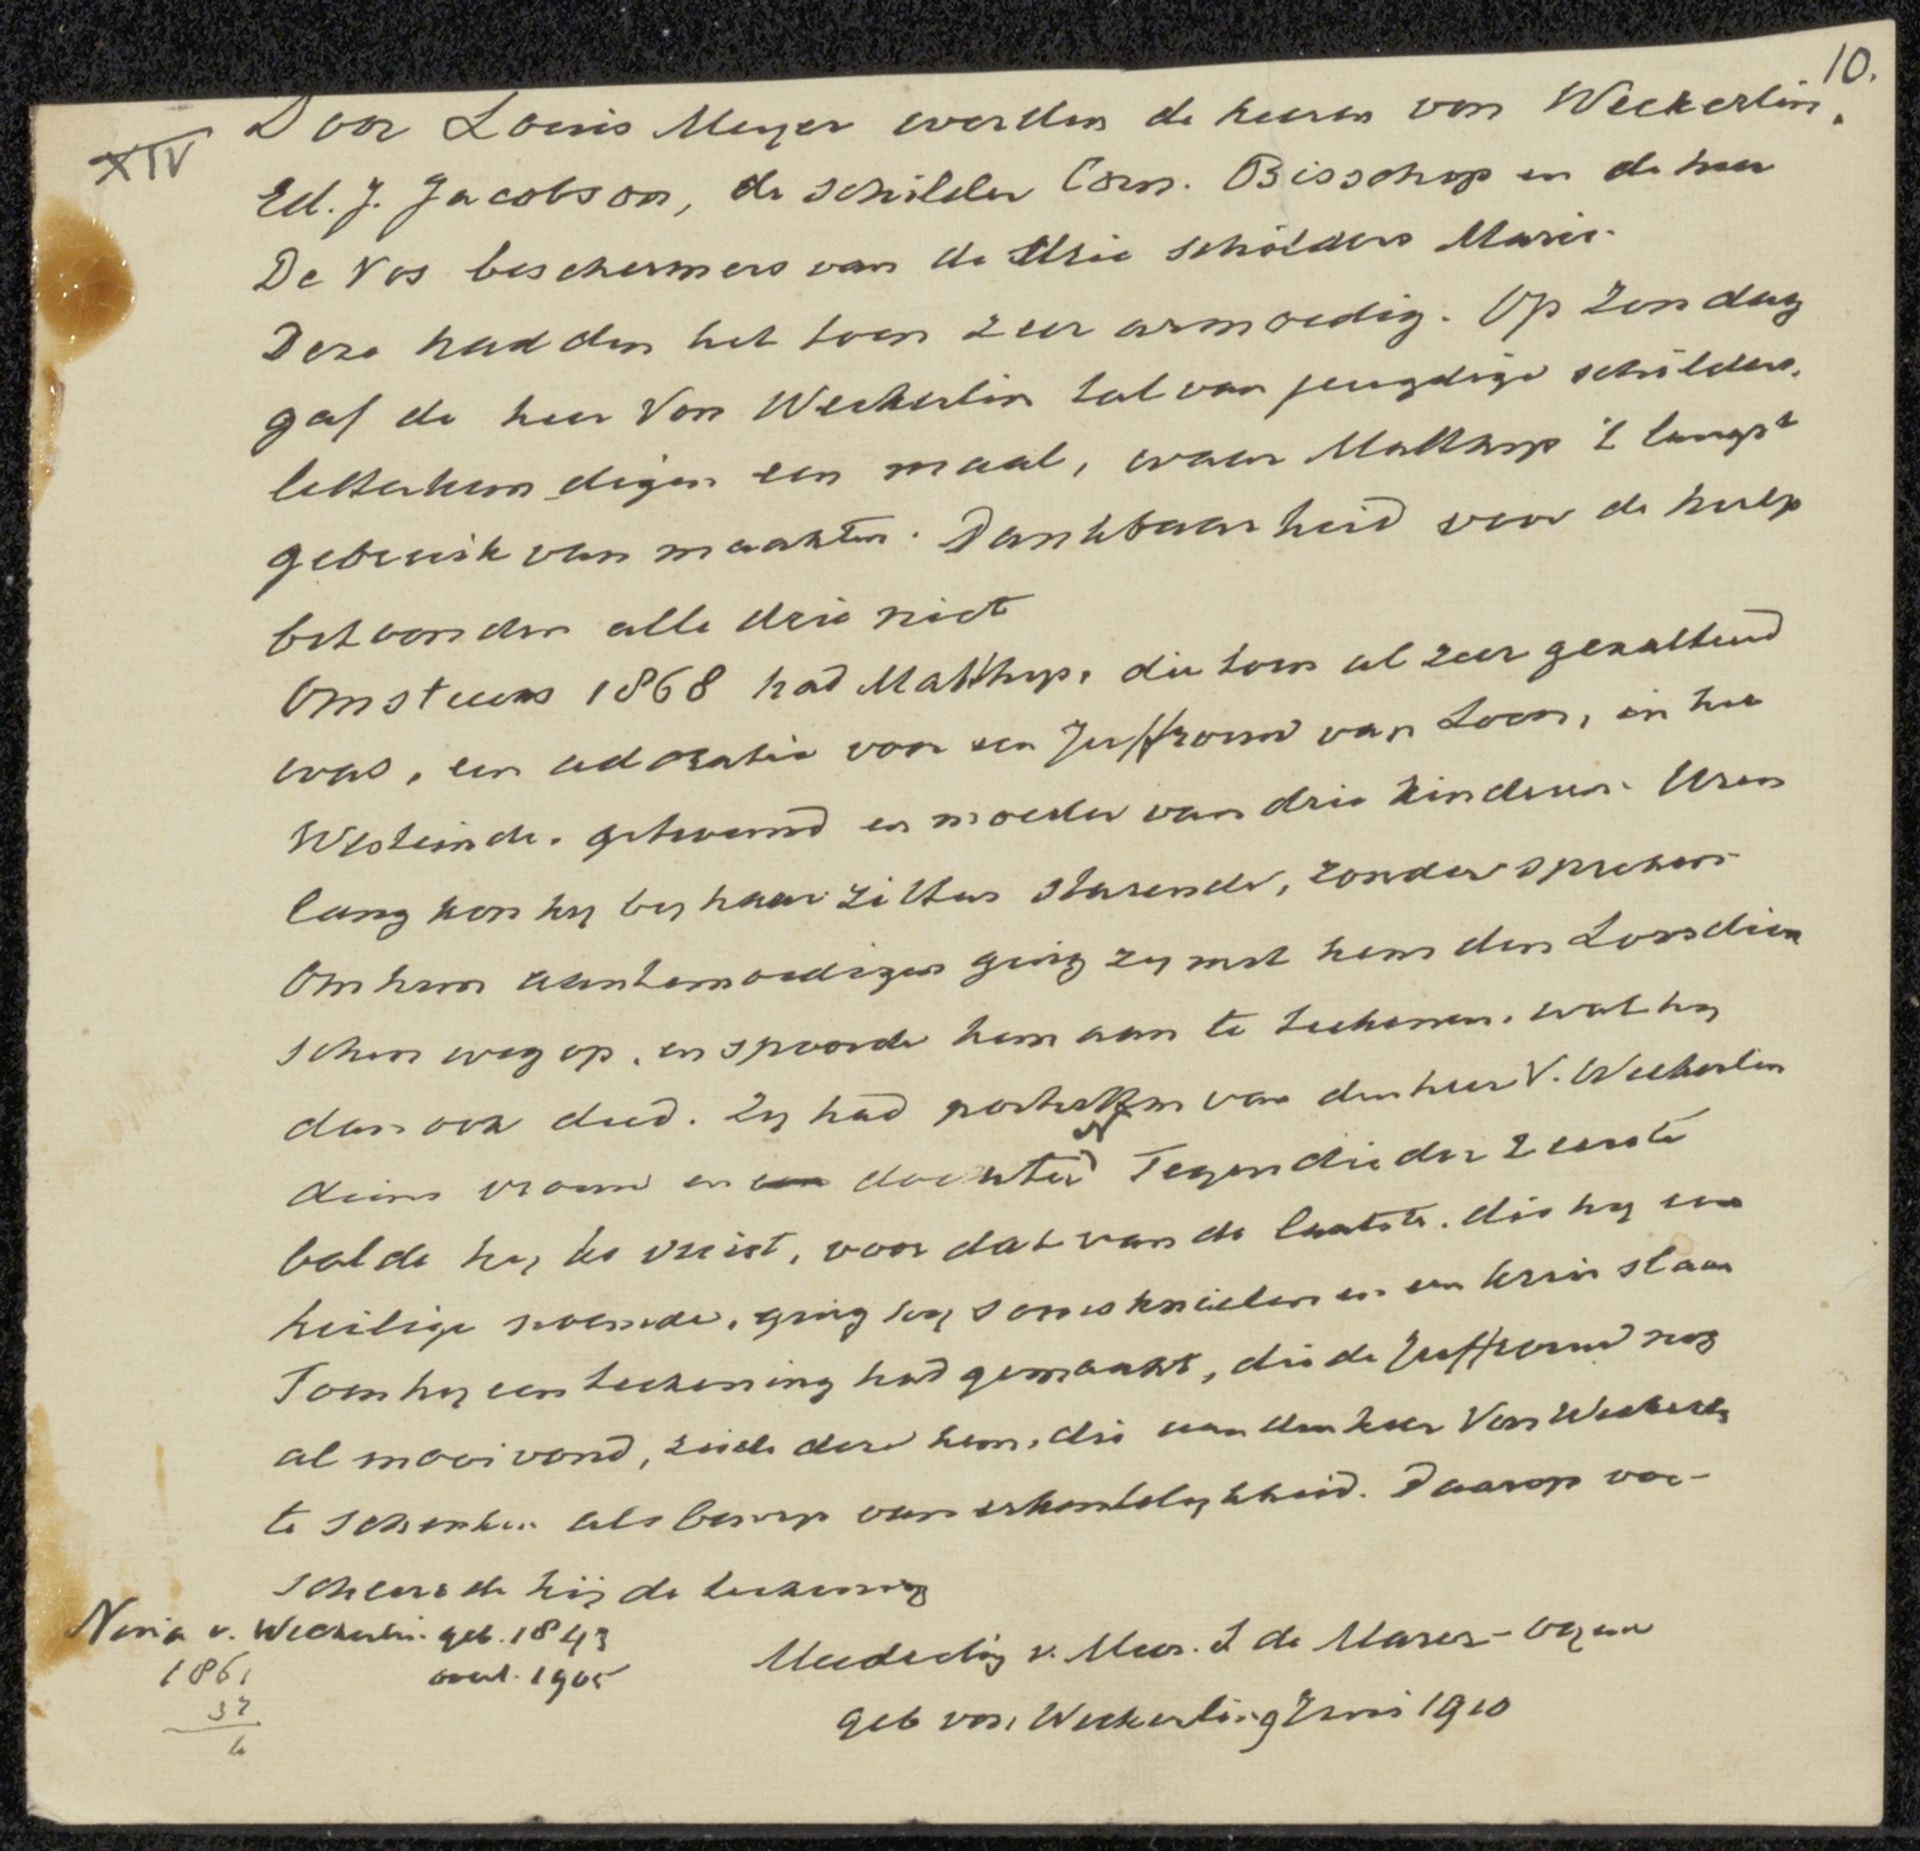 10.
XIV
Door Louis Meyer werden de heeren von Weckerlin,
Ed. J. Jacobson, de schilder Corn. Bisschop en de heer
De Vos beschermers van de drie schilders Maris.
Deze hadden het toen zeer armoedig. Op Zondag
gaf de heer Von Weckerlin tal van jeugdige schilders,
letterkundigen een maal, waar Matthijs 't langst
gebruik van maakten. Dankbaarheid voor de hulp
betoonden alle drie niet
Omstreeks 1868 had Matthijs, die toen al zeer gexalteerd
was, een adoratie voor een Juffrouw van Loon, in het
Westeinde. getrouwd en moeder van drie kinderen. Uren
lang kon hij bij haar zitten starende, zonder spreken
Om hem aantemoedigen ging zij met hem den Loosduin
schen weg op, en spoorde hem aan te teekenen. wat hij
dan ook deed. Zij had portretten van den heer V. Weckerlin
diens vrouw en dochter Tegen die der 2 eerste
balde hij de vuist, voor dat van de laatste. die hij een
heilige noemde, ging hij soms knielen en een kruis slaan
Toen hij een teekening had gemaakt, die de Juffrouw nog
al mooi vond, zeide deze hem, die aan den heer Von Weckerlin
te schenken als bewijs van erkentelijkheid. Daarop ver-
scheurde hij de teekening
Nina v. Weckerlin geb. 1843
1861 overl. 1905
Mededeeling v. Mevr. I de Marez-Oyens
geb von Weckerlin 9 Juni 1910